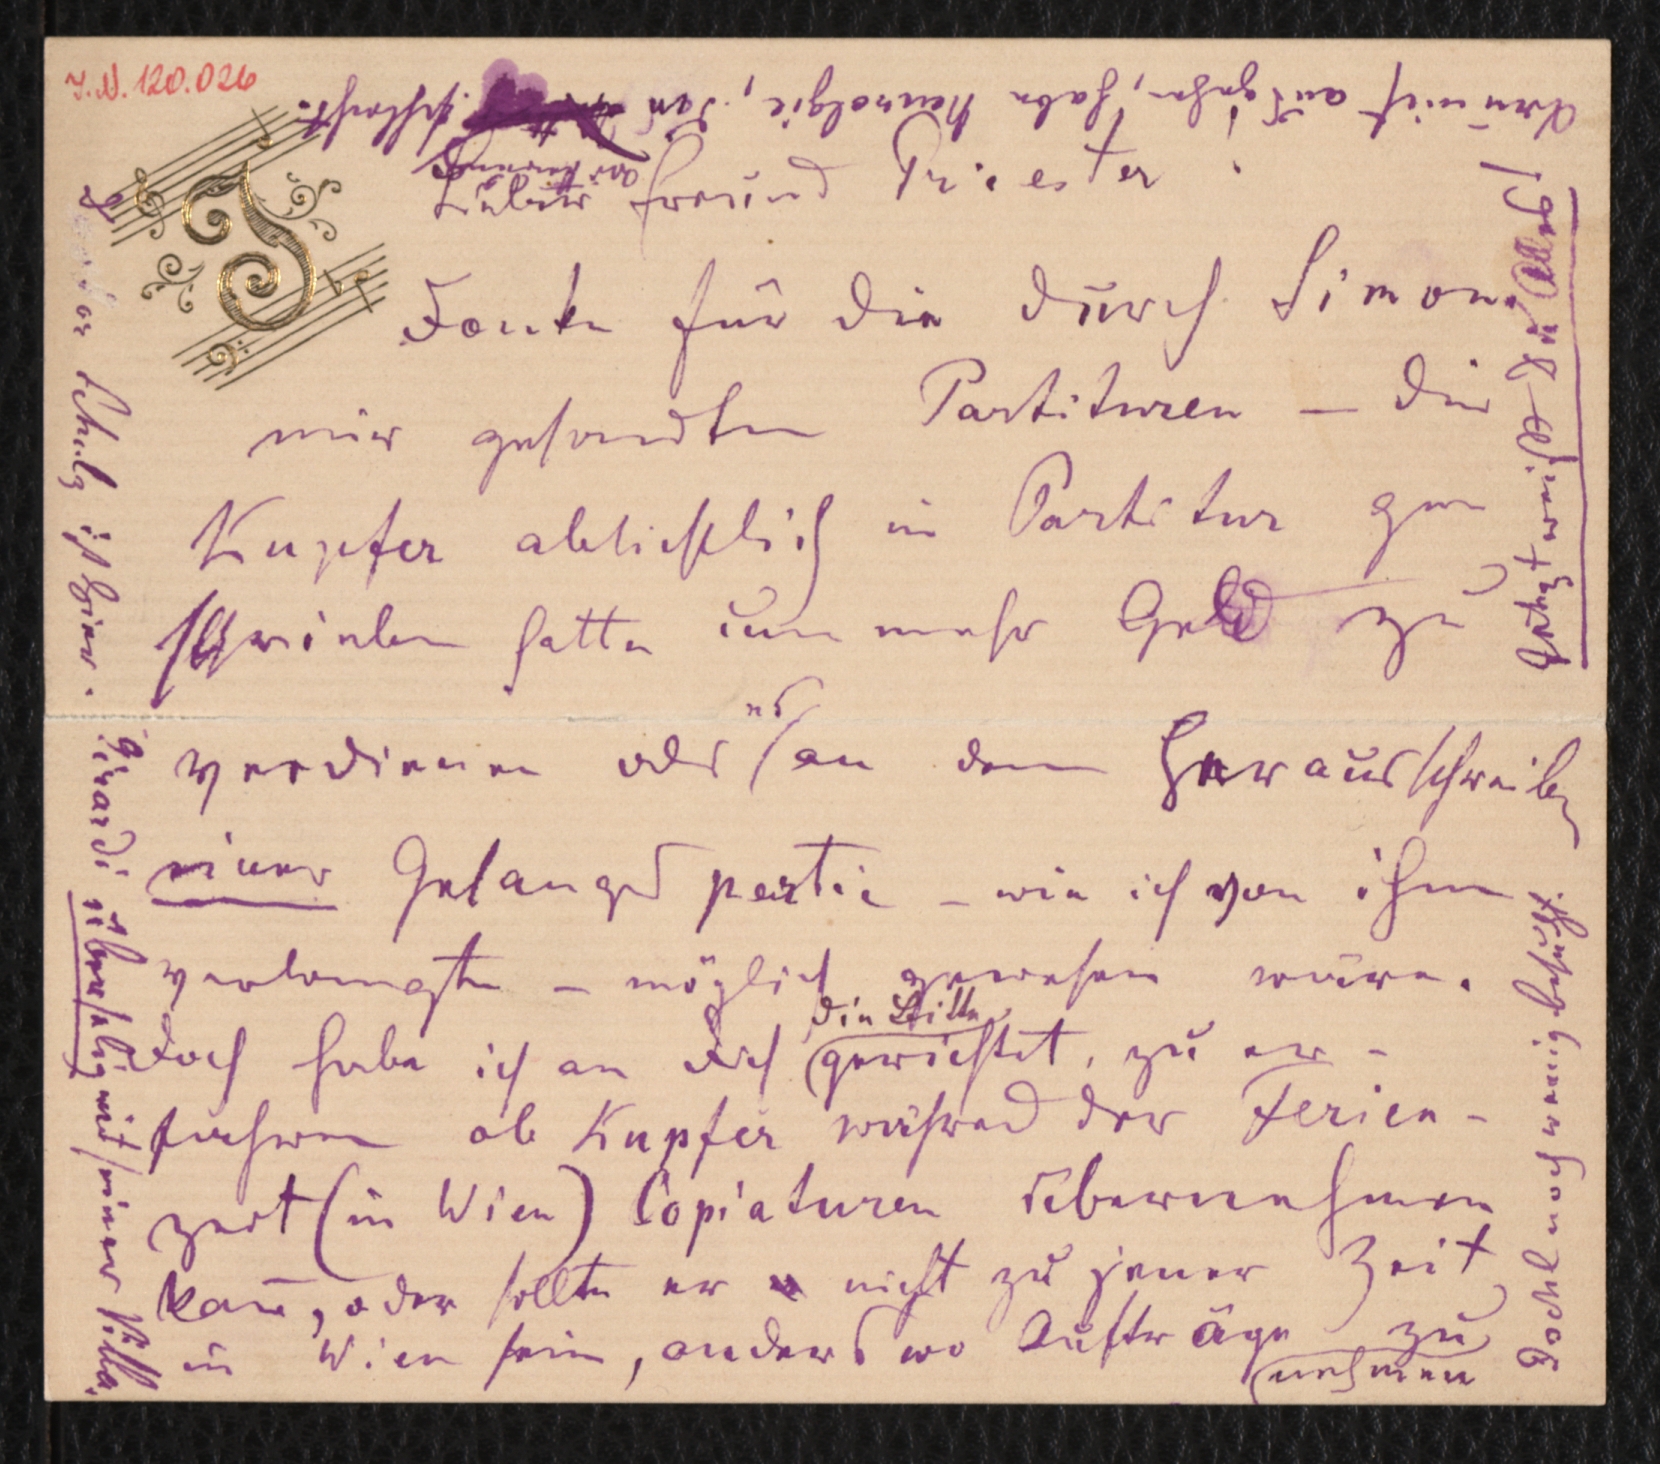 I.N. 120.026
Lieber Freund Priester!
Danke für die durch Simon
mir gesandten Partituren – die
Kupfer absichtlich in Partitur ge-
schrieben hatte um mehr Geld zu
verdienen oder es an dem Herausschreiben
einer Gesangspartie – wie ich von ihm
verlangte – möglich gewesen wäre.
Doch habe ich an Dich die Bitte gerichtet, zu er-
fahren ob Kupfer während der Ferien-
zeit (in Wien) Copiaturen übernehmen
kann, oder sollte er nicht zu jener Zeit
in Wien sein, anderswo Aufträge zu
nehmen
Doch noch wenig besucht.
Jetzt weißt Du Alles!
ausgehen, habe Neuralgie, das
schlecht.
Schulz ist hier.
Girardi überselig mit seiner Villa.